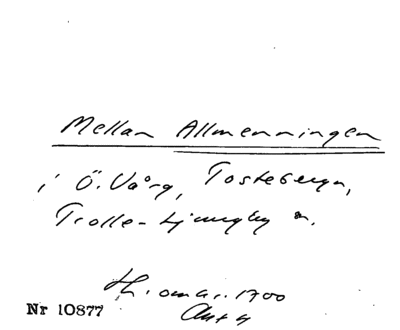 Mellan Allmenningen
i Ö. Vång, Tosteberga,
Trolle-Ljungby m.
omkr. 1700
Nr 10877